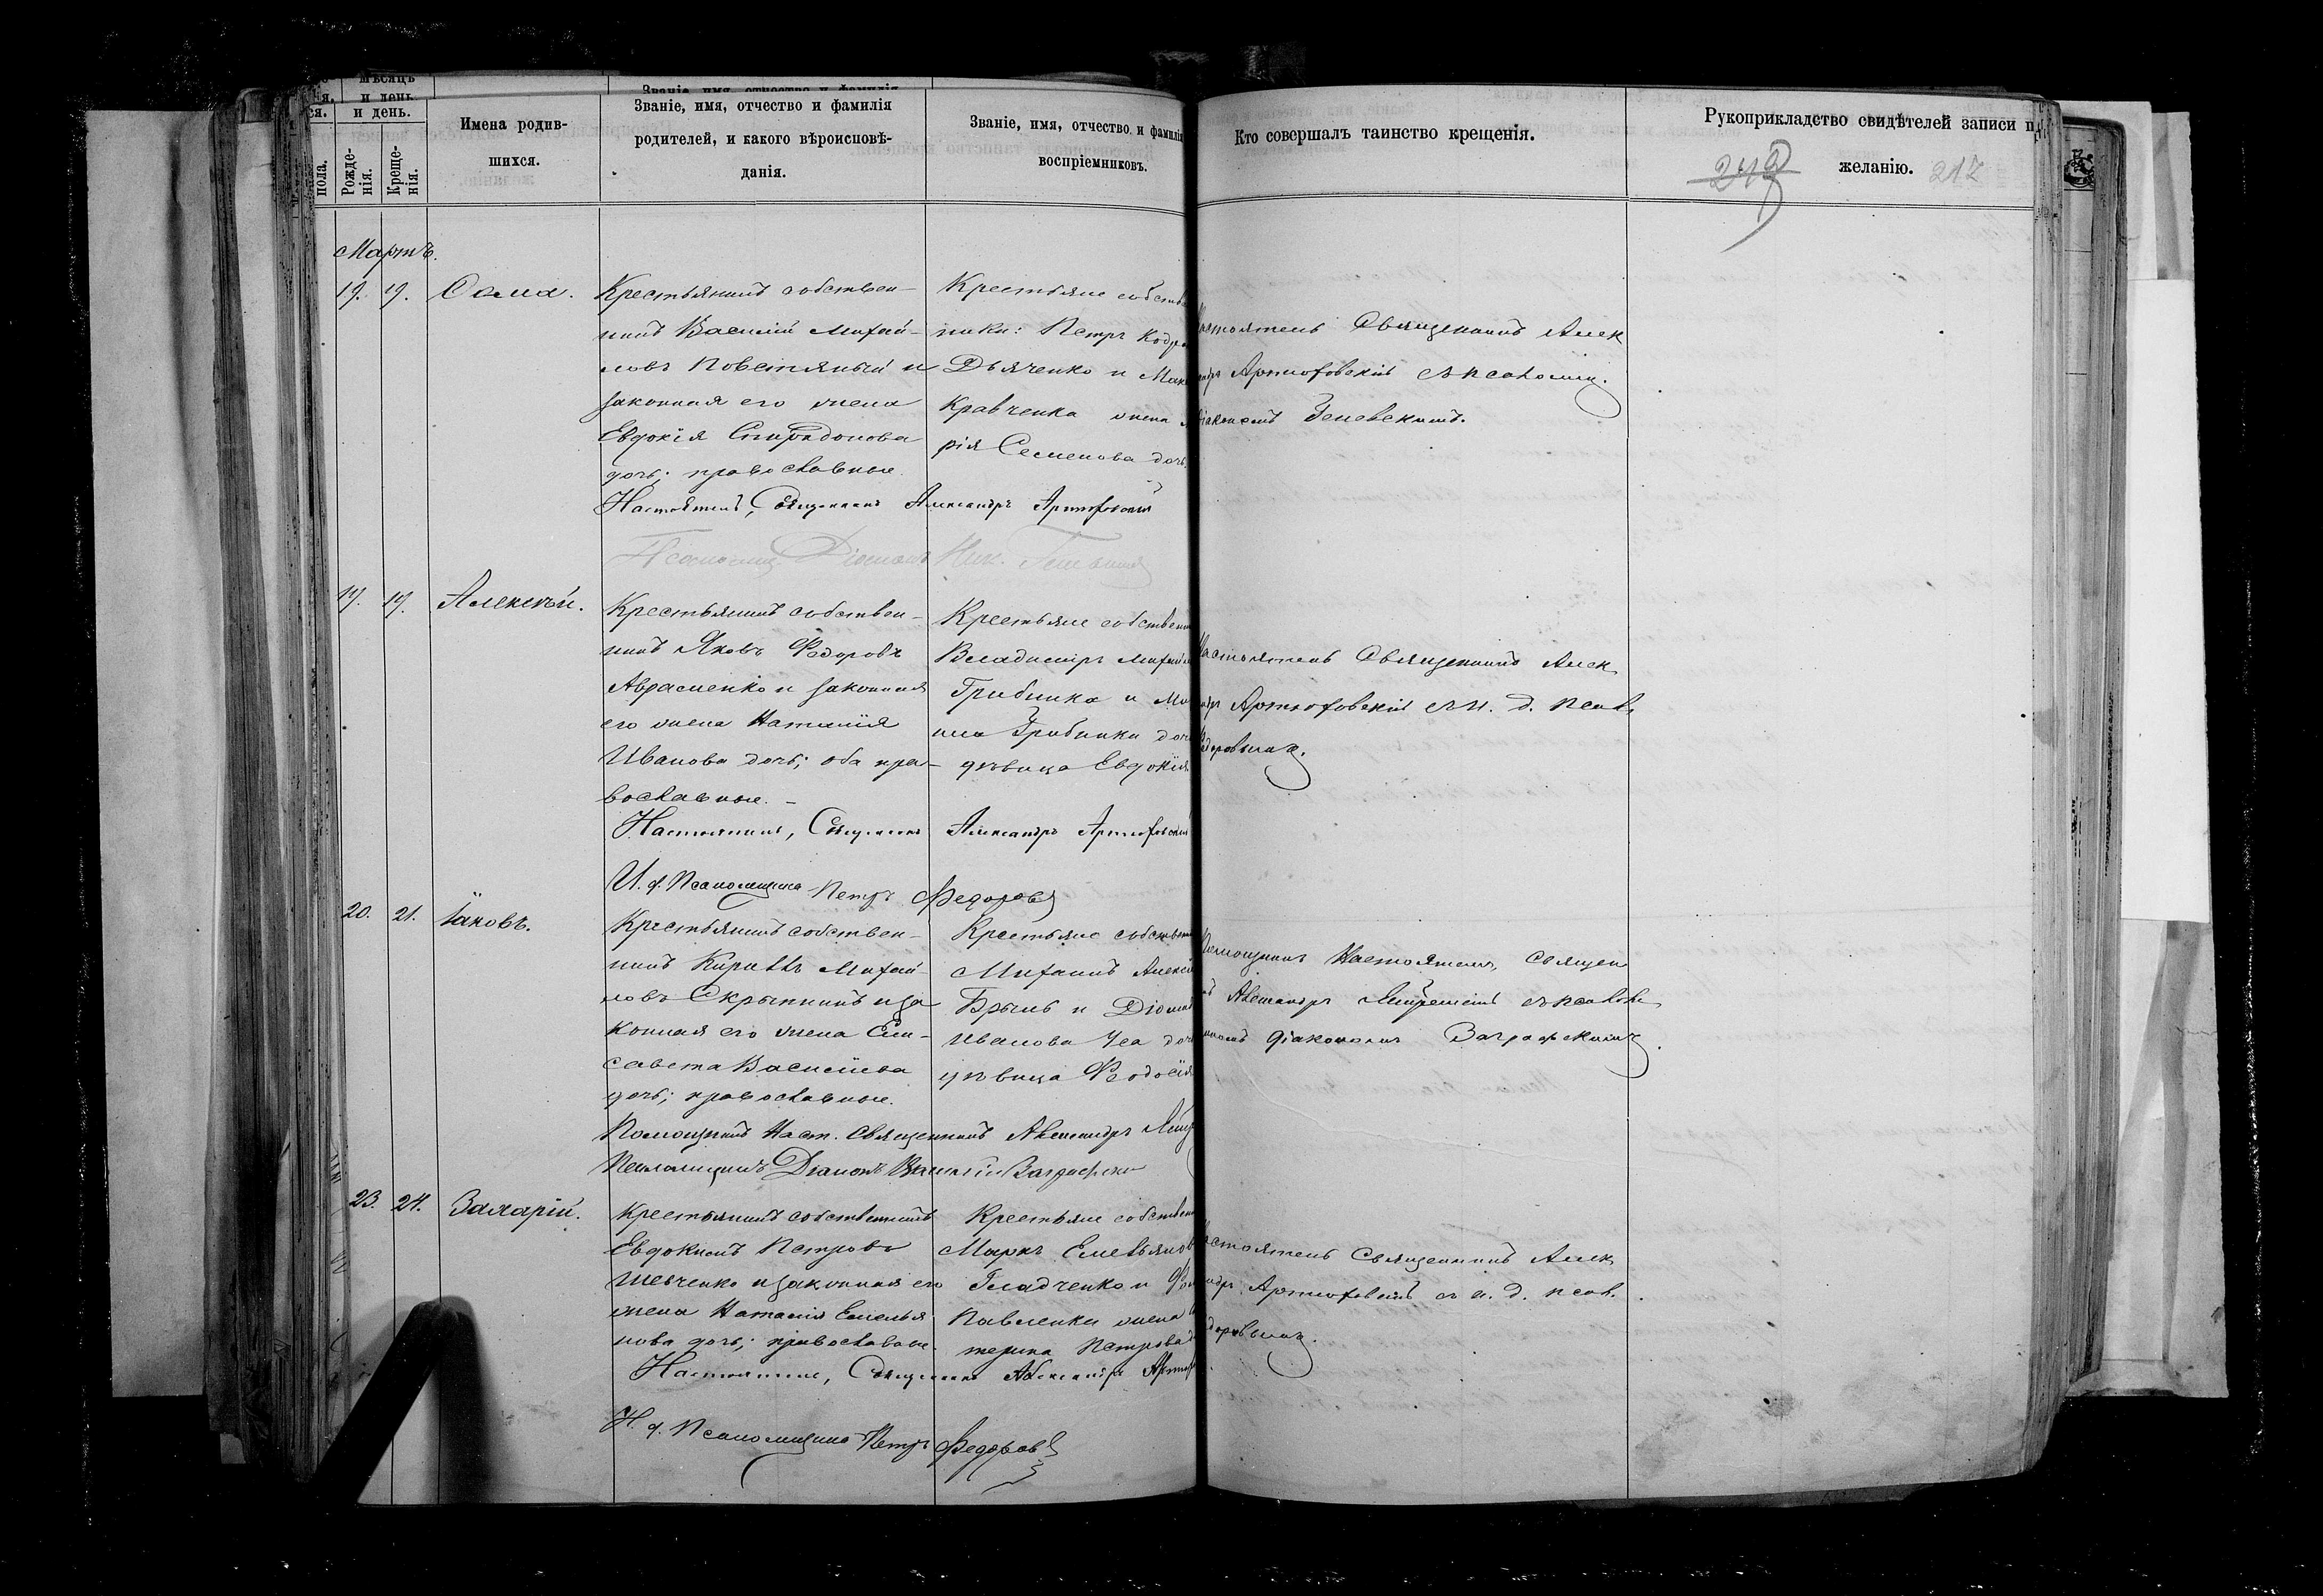 мѣсяцъ
и день.
Званіе, имя, отчество и фамилія
ся.
и день.
пола.
Рожде-
нія.
Креще-
нія.
Имена родив-
шихся.
Званіе, имя, отчество и фамилія
родителей, и какого вѣроисповѣ-
данія.
Званіе, имя, отчество и фамилія
воспріемниковъ.
Кто совершалъ таинство крещенія.
Рукоприкладство свидѣтелей записи п
желанію.
217
Мартъ.
19. 19.
Крестьянинъ собствен-
никъ Василій Михай-
ловъ Повстяный и
законная его жена
Евдокія Спиридонова
дочь; православные.
Крестьяне собстве
ники: Петръ
Дьяченко и
Кравченка жена
рія Семенова дочь.
Настоятель Священникъ Алек
Артюховскій съ псаломщ.
діакономъ
Настоятель, Священникъ Александръ Артюховскій
Псаломщ. Діаконъ Ник.
19. 19. Алексѣй.
Крестьянинъ собствен-
никъ Яковъ Федоровъ
Авраменко и законная
его жена Наталія
Иванова дочь; оба пра-
вославные.
Крестьяне собственн
Владиміръ Михайл
Грибинка и
Грибинки доч
дѣвица Евдокія
Настоятель Священникъ Алек
Артюховскій съ и. д. псал.
Настоятель, Священникъ Александръ Артюховскій
И. д. Псаломщика Петръ Федоровъ
20. 21. Іаковъ.
Крестьянинъ собствен-
никъ Кириллъ Михай-
ловъ Скрыпникъ и за
конная его жена Ели-
савета Василіева
дочь; православные.
Крестьяне собственн
Михаилъ Алексѣ
Брыль и
Иванова доч
дѣвица Феодосія
Помощникъ Настоятеля, Священ
Александръ съ псалом
діакономъ
Помощникъ Наст. Священникъ Александръ
Псаломщикъ Діаконъ Василій
23. 24. Захарій.
Крестьянинъ собственникъ
Евдокимъ Петровъ
Шевченко и законная его
жена Наталія Емелья
нова дочь; православные.
Крестьяне собствен
Маркъ Емельянов
Гладченко и
Павленка жена
терина Петрова
Настоятель Священникъ Алек
Артюховскій съ и. д. псал.
Настоятель, Священникъ Александръ
И. д. Псаломщика Петръ Федоровъ